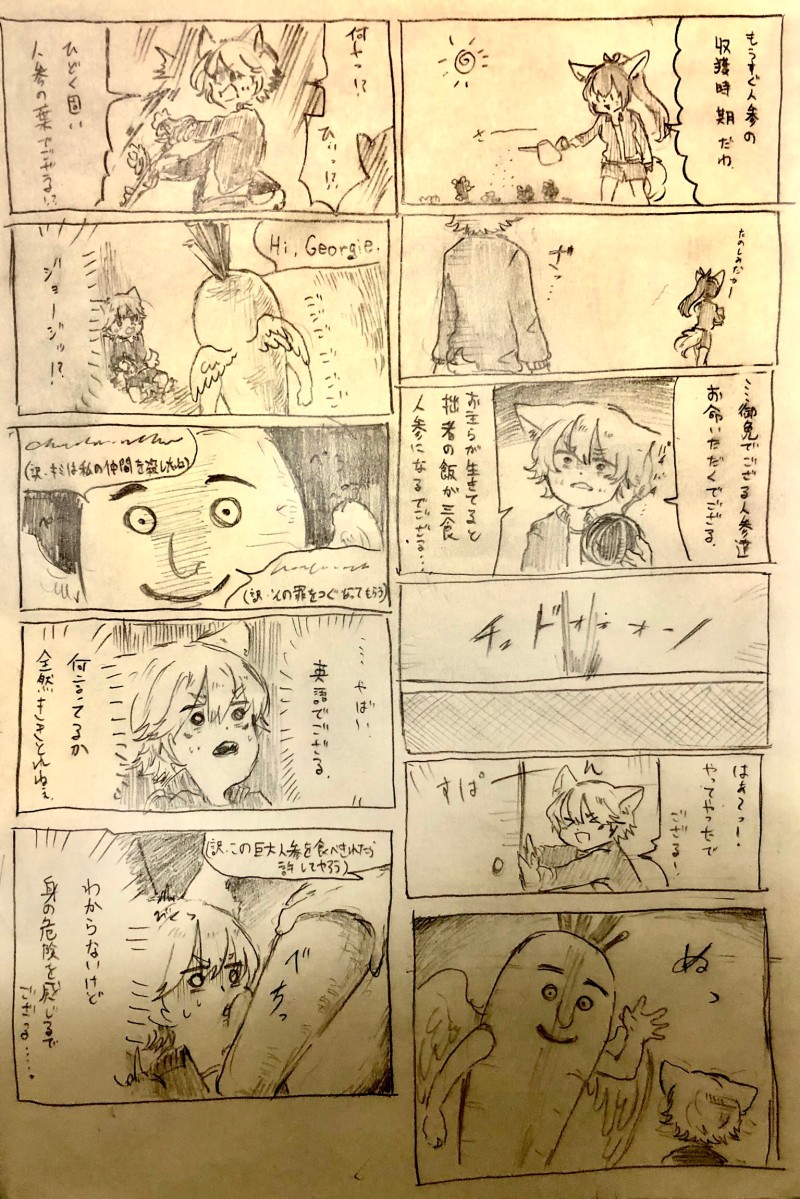 もうすぐ人参の
収獲時期だわ
さー
たのしみだなー
ザッ…
…御免でござる人参達
お命いただくでござる.
お主らが生きてると
拙者の飯が三食
人参になるでござる…
チュドオォオーン
はあ~っ!.
やってやったで
ござる!
すぱ
ぬっ
何やつ!?
ひいっ!?
ひどく固い
人参の葉でござる!?
Hi, Georgie.
ゴゴゴゴゴゴ
ジョージッ!?
(訳.キミは私の仲間を殺したね)
(訳.その罪をつぐなってもらう)
…やばい.
英語でござる.
何言ってるか
全然ききとれねぇ.
(訳.この巨大人参を食べきれたら
許してやろう)
びくっ
でちっ
わからないけど
身の危険を感じるで
ござる…..